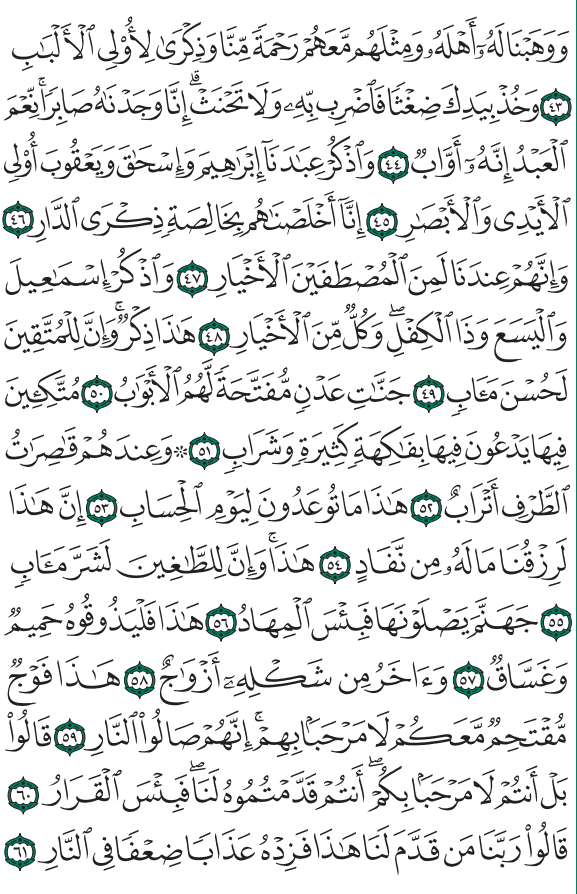 وَوَهَبْنَا لَهُۥٓ أَهْلَهُۥ وَمِثْلَهُم مَّعَهُمْ رَحْمَةً مِّنَّا وَذِكْرَىٰ لِأُو۟لِى ٱلْأَلْبَـٰبِ
٤٣ وَخُذْ بِيَدِكَ ضِغْثًا فَٱضْرِب بِّهِۦ وَلَا تَحْنَثْ ۗ إِنَّا وَجَدْنَـٰهُ صَابِرًا ۚ نِّعْمَ
ٱلْعَبْدُ إِنَّهُۥٓ أَوَّابٌ ٤٤ وَٱذْكُرْ عِبَـٰدَنَآ إِبْرَٰهِيمَ وَإِسْحَـٰقَ وَيَعْقُوبَ أُو۟لِى
ٱلْأَيْدِى وَٱلْأَبْصَـٰرِ ٤٥ إِنَّآ أَخْلَصْنَـٰهُم بِخَالِصَةٍ ذِكْرَى ٱلدَّارِ ٤٦
وَإِنَّهُمْ عِندَنَا لَمِنَ ٱلْمُصْطَفَيْنَ ٱلْأَخْيَارِ ٤٧ وَٱذْكُرْ إِسْمَـٰعِيلَ
وَٱلْيَسَعَ وَذَا ٱلْكِفْلِ ۖ وَكُلٌّ مِّنَ ٱلْأَخْيَارِ ٤٨ هَـٰذَا ذِكْرٌ ۚ وَإِنَّ لِلْمُتَّقِينَ
لَحُسْنَ مَـَٔابٍ ٤٩ جَنَّـٰتِ عَدْنٍ مُّفَتَّحَةً لَّهُمُ ٱلْأَبْوَٰبُ ٥٠ مُتَّكِـِٔينَ
فِيهَا يَدْعُونَ فِيهَا بِفَـٰكِهَةٍ كَثِيرَةٍ وَشَرَابٍ ٥١ ۞ وَعِندَهُمْ قَـٰصِرَٰتُ
ٱلطَّرْفِ أَتْرَابٌ ٥٢ هَـٰذَا مَا تُوعَدُونَ لِيَوْمِ ٱلْحِسَابِ ٥٣ إِنَّ هَـٰذَا
لَرِزْقُنَا مَا لَهُۥ مِن نَّفَادٍ ٥٤ هَـٰذَا ۚ وَإِنَّ لِلطَّـٰغِينَ لَشَرَّ مَـَٔابٍ
٥٥ جَهَنَّمَ يَصْلَوْنَهَا فَبِئْسَ ٱلْمِهَادُ ٥٦ هَـٰذَا فَلْيَذُوقُوهُ حَمِيمٌ
وَغَسَّاقٌ ٥٧ وَءَاخَرُ مِن شَكْلِهِۦٓ أَزْوَٰجٌ ٥٨ هَـٰذَا فَوْجٌ
مُّقْتَحِمٌ مَّعَكُمْ لَا مَرْحَبًۢا بِهِمْ ۚ إِنَّهُمْ صَالُوا۟ ٱلنَّارِ ٥٩ قَالُوا۟
بَلْ أَنتُمْ لَا مَرْحَبًۢا بِكُمْ ۖ أَنتُمْ قَدَّمْتُمُوهُ لَنَا ۖ فَبِئْسَ ٱلْقَرَارُ ٦٠
قَالُوا۟ رَبَّنَا مَن قَدَّمَ لَنَا هَـٰذَا فَزِدْهُ عَذَابًا ضِعْفًا فِى ٱلنَّارِ ٦١